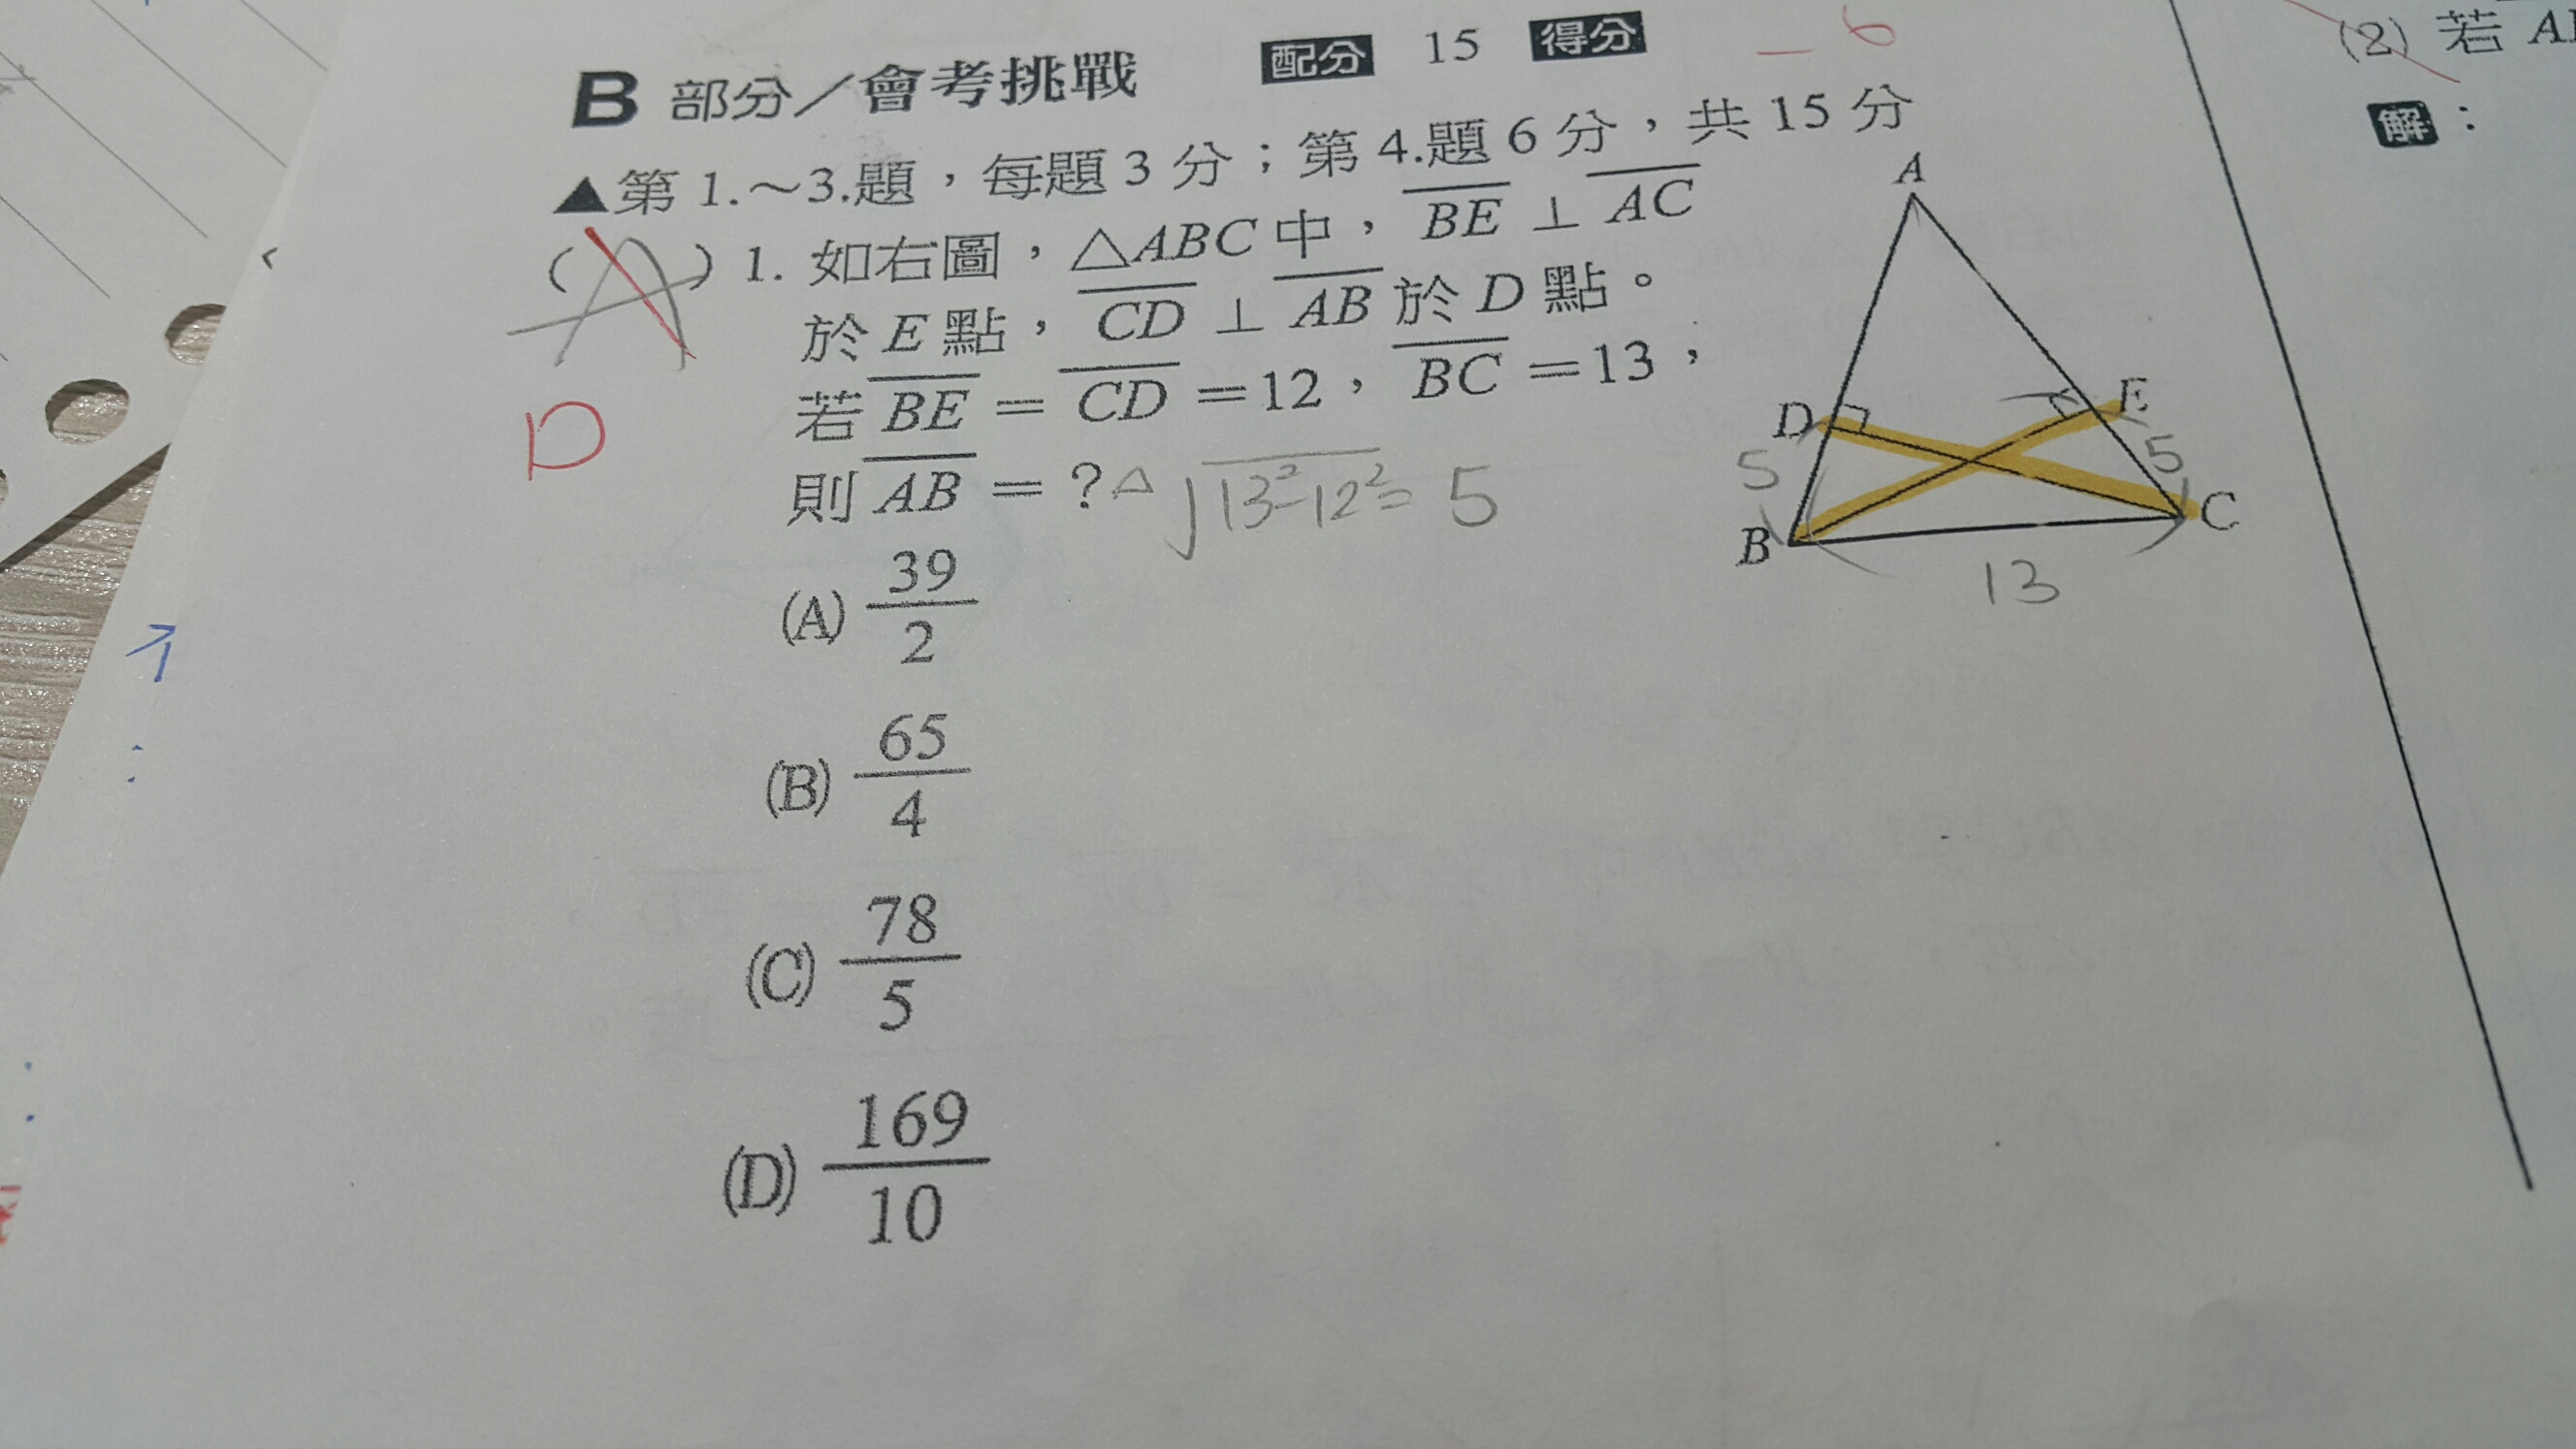 B 部分／會考挑戰 配分 15 得分 -6
▲第 1.～3.題，每題 3 分；第 4.題 6 分，共 15 分
(A) 1. 如右圖，△ABC 中，BE ⊥ AC
於 E 點，CD ⊥ AB 於 D 點。
若 BE = CD =12，BC =13，
則 AB = ? △ √13²-12² = 5
D
(A) 39/2
(B) 65/4
(C) 78/5
(D) 169/10
A
D
E
5
5
B
C
13
(2) 若
解：